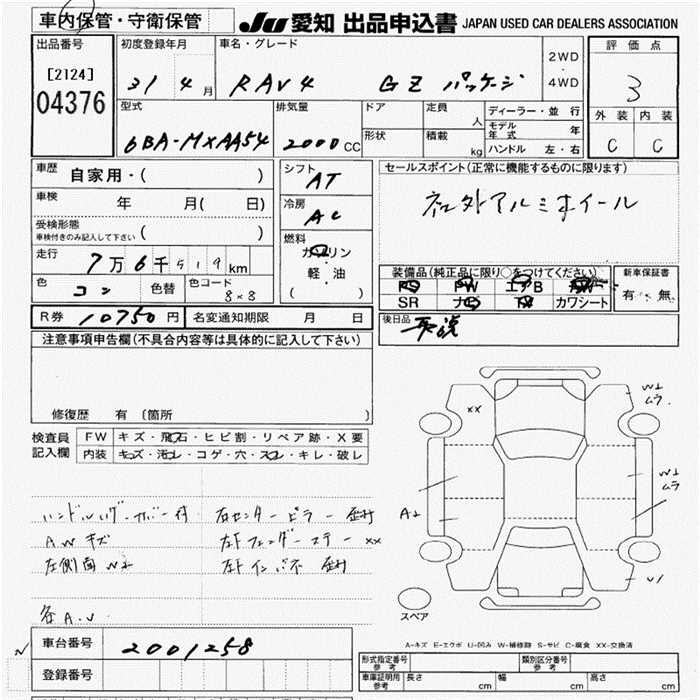 車内保管・守衛保管
JU 愛知 出品申込書 JAPAN USED CAR DEALERS ASSOCIATION
出品番号
[2124]
04376
初度登録年月
31 4 月
車名・グレード
RAV4 GZ パッケージ
2WD
・
4WD
評価点
3
外装 内装
C C
型式
6BA-MXAA54
排気量
2000 CC
ドア
形状
定員
人
積載
kg
ディーラー・並行
モデル年式 年
ハンドル 左・右
車歴
自家用・( )
車検
年 月( 日)
受検形態
車検付きのみ記入して下さい ( )
走行
7万6千519km
色
コン
色替
色コード
8×8
シフト
AT
冷房
AC
燃料
ガソリン
軽・油
( )
セールスポイント(正常に機能するものに限ります)
社外アルミホイール
装備品(純正品に限り○をつけてください)
PS PW エアB AW
SR ナビ TV カワシート
新車保証書
有・無
後日品
取説
R券 10750円
名変通知期限 月 日
注意事項申告欄(不具合内容等は具体的に記入して下さい)
修復歴 有 〔箇所 〕
検査員
記入欄
FW キズ・飛石・ヒビ割・リペア跡・X要
内装 キズ・汚レ・コゲ・穴・スレ・キレ・破レ
右センターピラー
A.W キズ
左側面 W2
各A.U
××
W2
ムラ
W2
ムラ
A2
U1
スペア
A-キズ E-エクボ U-凹み W-補修跡 S-サビ C-腐食 XX-交換済
車台番号
2001258
登録番号
形式指定番号
参考
類別区分番号
参考
車庫証明用
参考
長さ cm
幅 cm
高さ cm